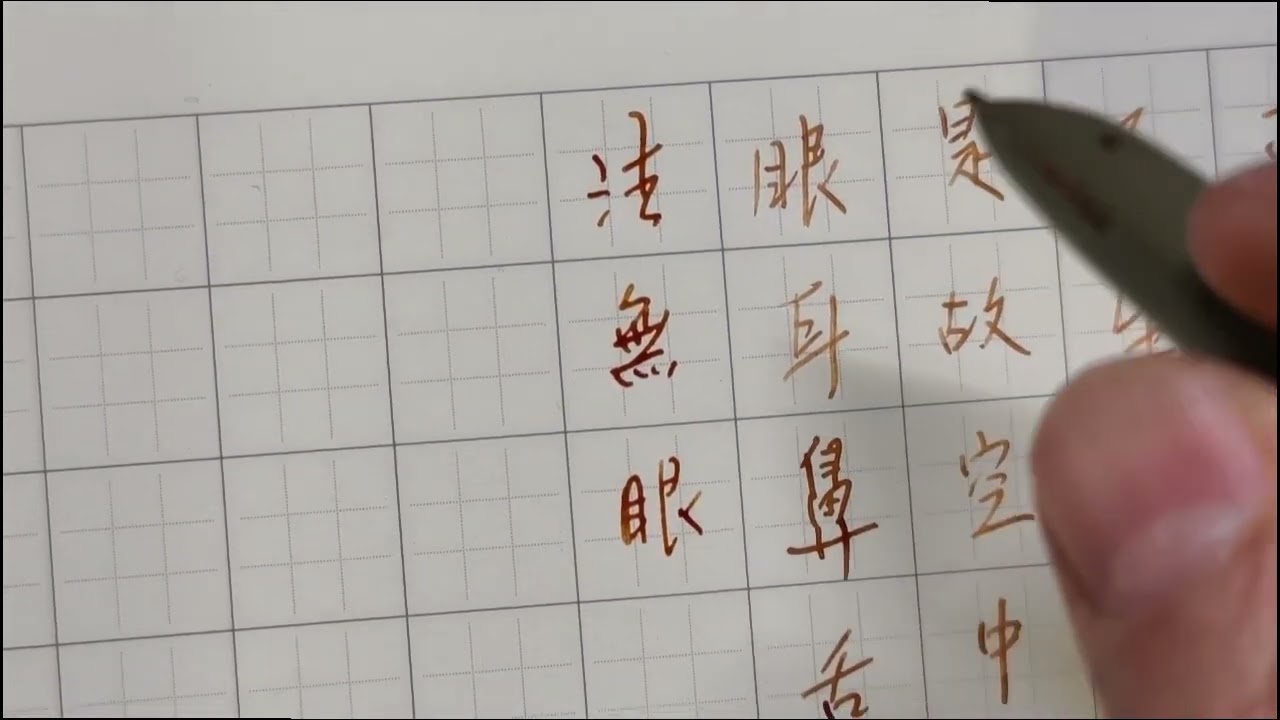 是故空中
眼耳鼻舌
法無眼